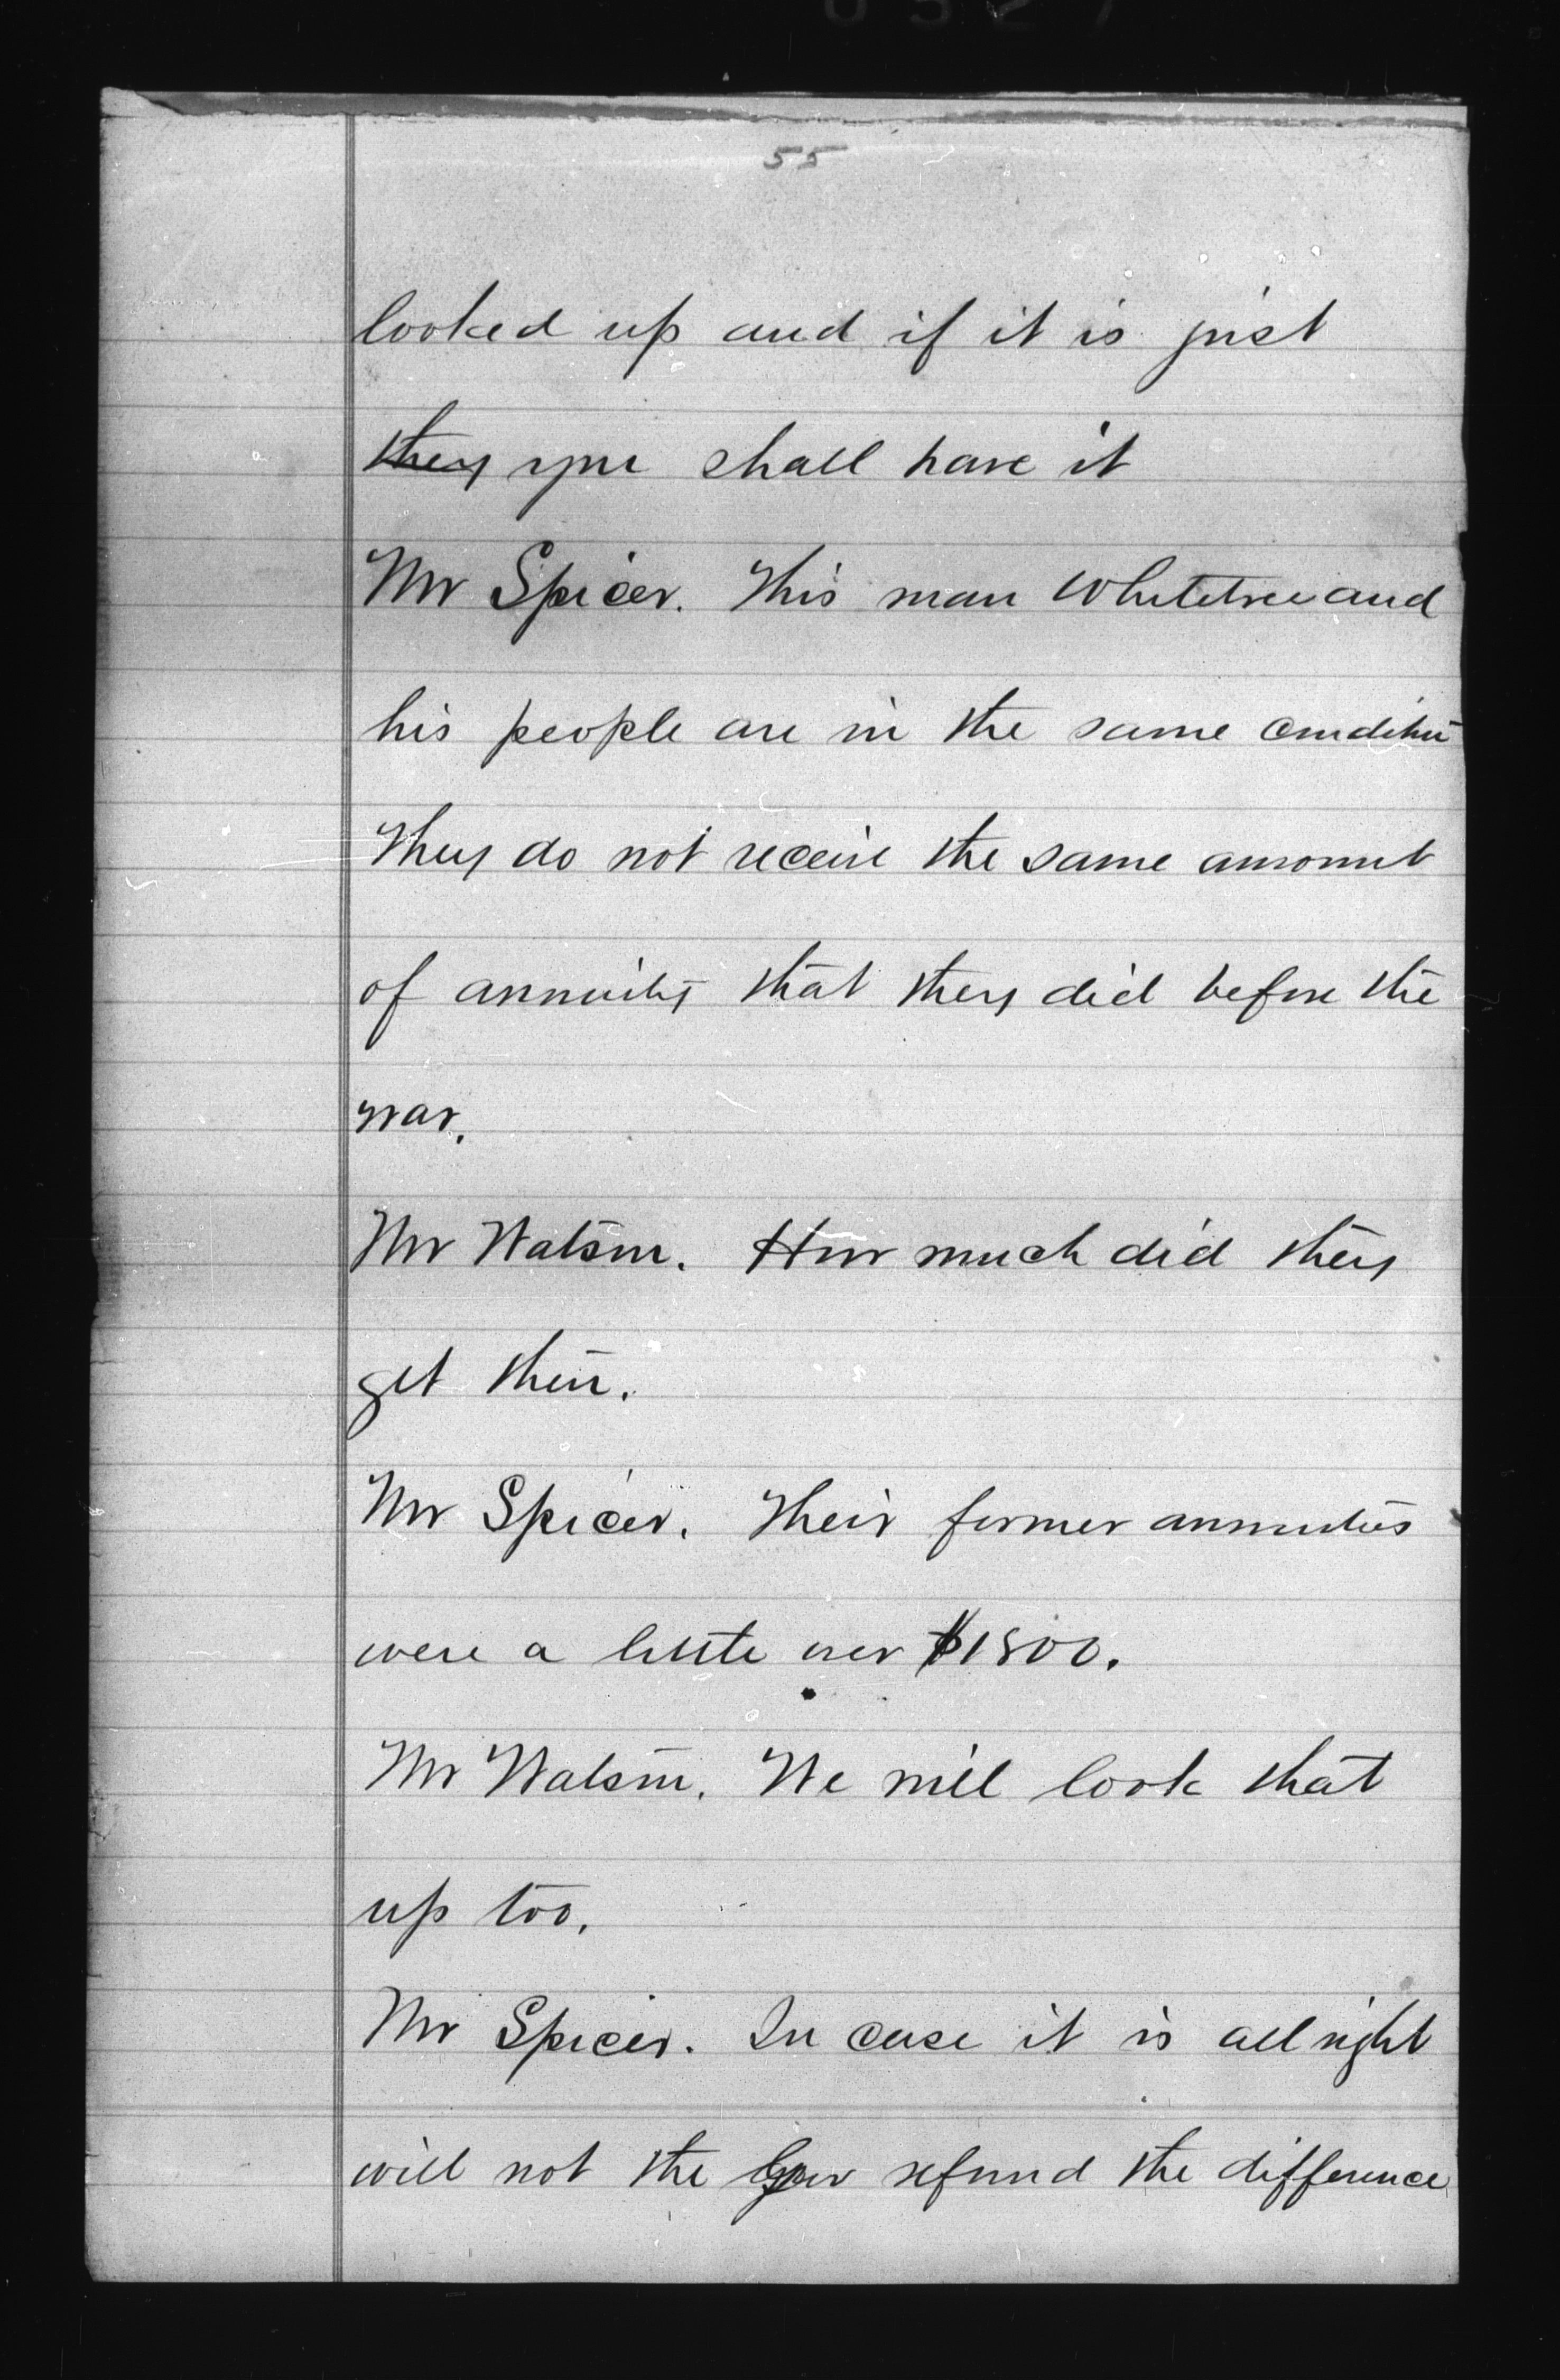 55
looked up and if it is just
they you shall have it
Mr Spicer. This man Whitetree and
his people are in the same condition
They do not receive the same amount
of annuity that they did before the
war.
Mr Watson. How much did they
get then.
Mr Spicer. Their former annuities
were a little over $1800.
Mr Watson. We will look that
up too.
Mr Spicer. In case it is all right
will not the Gov refund the difference